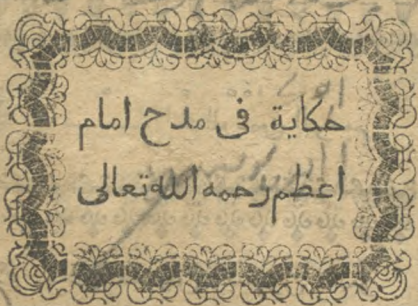 حكاية فى مدح امام
اعظم رحمه الله تعالى